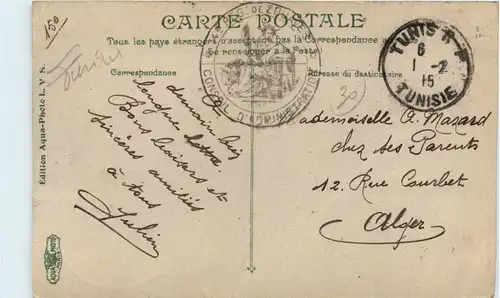 150
Tunisie
CARTE POSTALE
Tous les pays étrangers n'acceptent pas la Correspondance au
Se renseigner à la Poste
Correspondance
Adresse du destinataire
TUNIS R.P
6
1 -2
15
TUNISIE
DE ZOUAVES
CONSEIL D'ADMINISTRATION
30
A
demain bien
longue lettre.
Bons baisers et
sincères amitiés
à tous
Julien
Mademoiselle A. Mazard
chez ses Parents
12. Rue Courbet
Alger
Edition Aqua-Photo L. V. S.
AQUA PHOTO